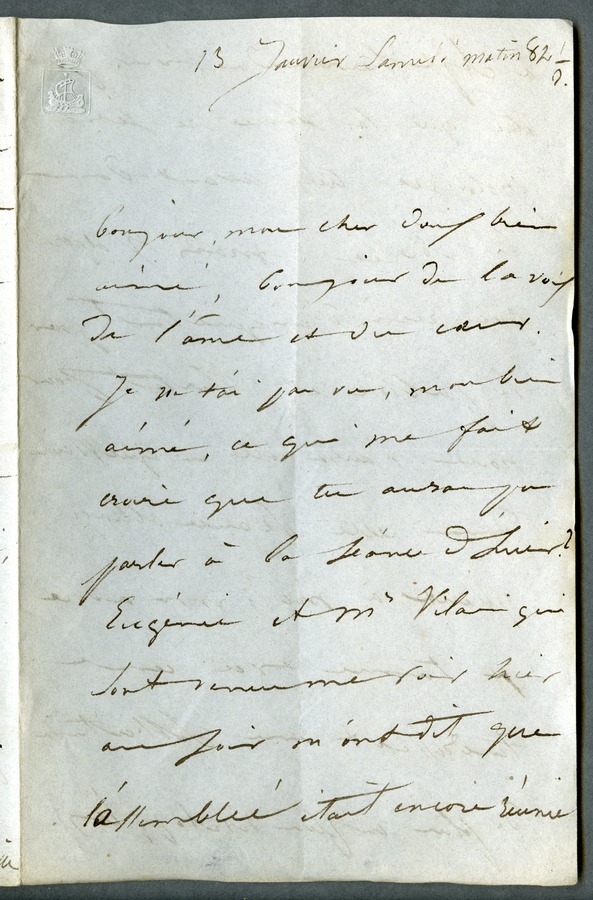 13 Janvier Samedi matin 8 h ½
bonjour, mon cher doux bien
aimé, bonjour de la voix
de l'âme et du cœur.
Je ne t'ai pas vu, mon bien
aimé, ce qui me fait
croire que tu auras pu
parler à la séance d'hier ?
Eugénie et Mr Vilain qui
sont venu me voir hier
au soir m'ont dit que
l'assemblée était encore réunie